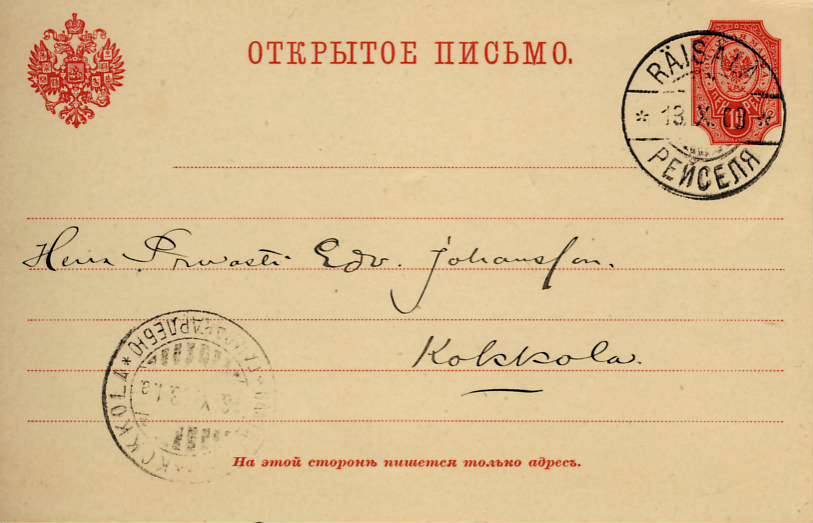 ОТКРЫТОЕ ПИСЬМО.
RÄISÄLÄ
* 13. X. 09 *
РЕЙСЕЛЯ
10
Herr Prowasti Edv. Johansson.
Kokkola.
На этой сторонѣ пишется только адресъ.